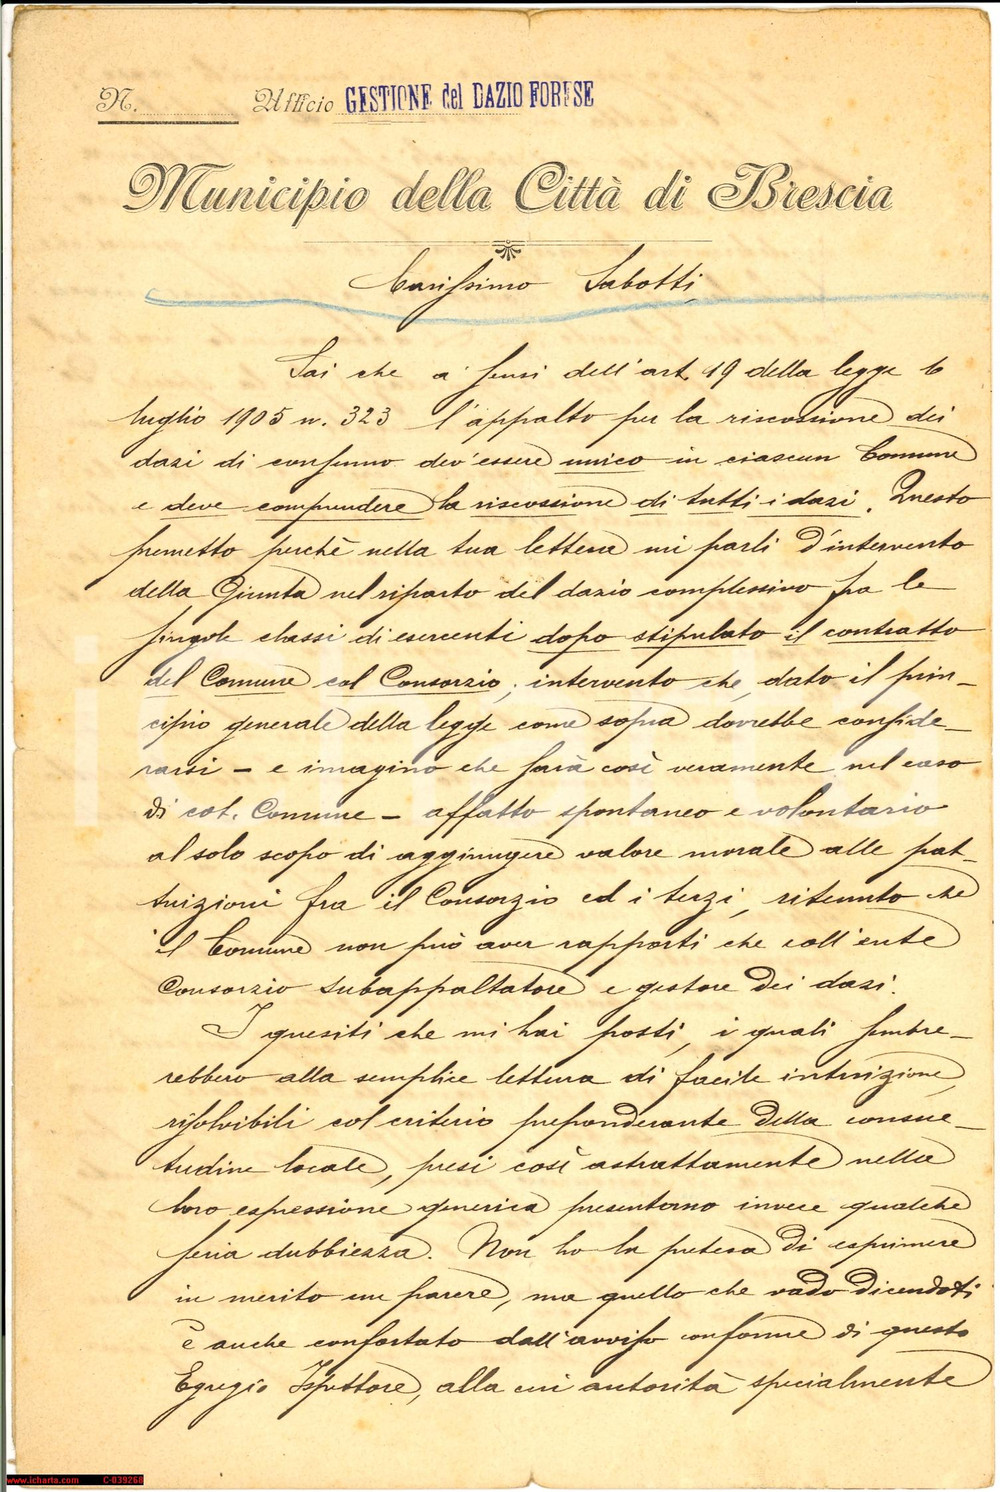 N. Ufficio GESTIONE del DAZIO FORESE
Municipio della Città di Brescia
Carissimo Sabotti
Sai che a' sensi dell'art. 19 della legge 6
luglio 1905 n. 323 l'appalto per la riscossione dei
dazi di consumo dev'essere unico in ciascun Comune
e deve comprendere la riscossione di tutti i dazi. Questo
premetto perchè nella tua lettera mi parli d'intervento
della Giunta nel riparto del dazio complessivo fra le
singole classi di esercenti dopo stipulato il contratto
del Comune col Consorzio; intervento che, dato il prin-
cipio generale della legge come sopra dovrebbe conside-
rarsi - e imagino che sarà così veramente nel caso
di cot. Comune - affatto spontaneo e volontario
al solo scopo di aggiungere valore morale alle pat-
tuizioni fra il Consorzio ed i terzi, ritenuto che
il Comune non può aver rapporti che coll'ente
Consorzio subappaltatore e gestore dei dazi.
I quesiti che mi hai posti, i quali sembre-
rebbero alla semplice lettura di facile intuizione,
risolvibili col criterio preponderante della consue-
tudine locale, presi così astrattamente nella
loro espressione generica presentano invece qualche
seria dubbiezza. Non ho la pretesa di esprimere
in merito un parere, ma quello che vado dicendoti
è anche confortato dall'avviso conforme di questo
Egregio Ispettore, alla cui autorità specialmente
www.icharta.com C-039268